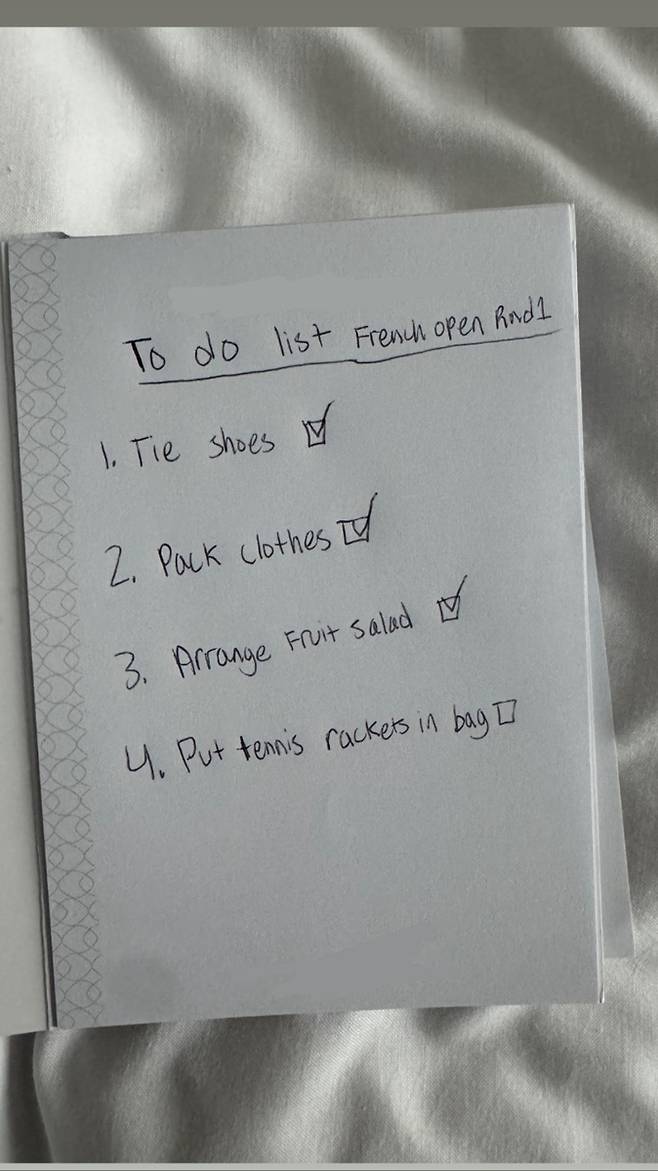 To do list French open Rnd1
1. Tie shoes ☑
2. Pack clothes ☑
3. Arrange Fruit salad ☑
4. Put tennis rackets in bag ☐